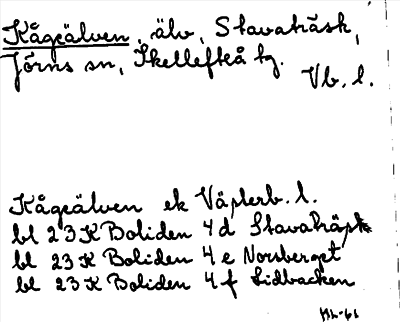 Kågeälven, älv, Stavaträsk,
Jörns sn, Skellefteå tg.
Vb. l.
Kågeälven ek Västerb. l.
bl 23K Boliden 4d Stavaträsk
bl 23K Boliden 4e Norsberget
bl 23K Boliden 4f Lidbacken